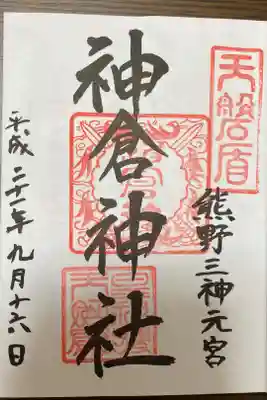 天磐盾
熊野三神元宮
神倉神社
平成二十一年九月十六日